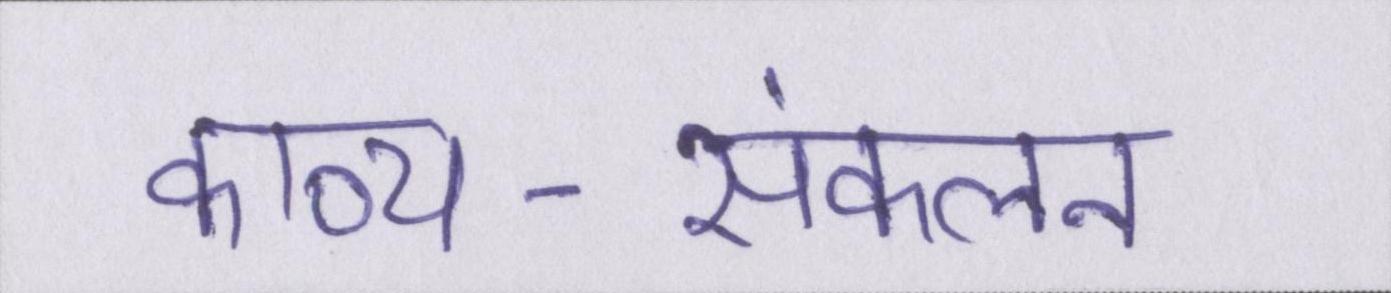 काव्य - संकलन